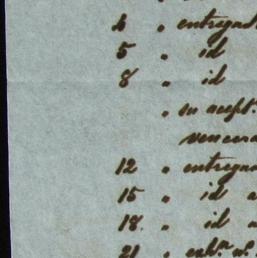 6 " entregad
5 " id
8 " id
" su acept.
vencera
12 " entregad
15 " id a
18. " id
21 " ent.ª n.º